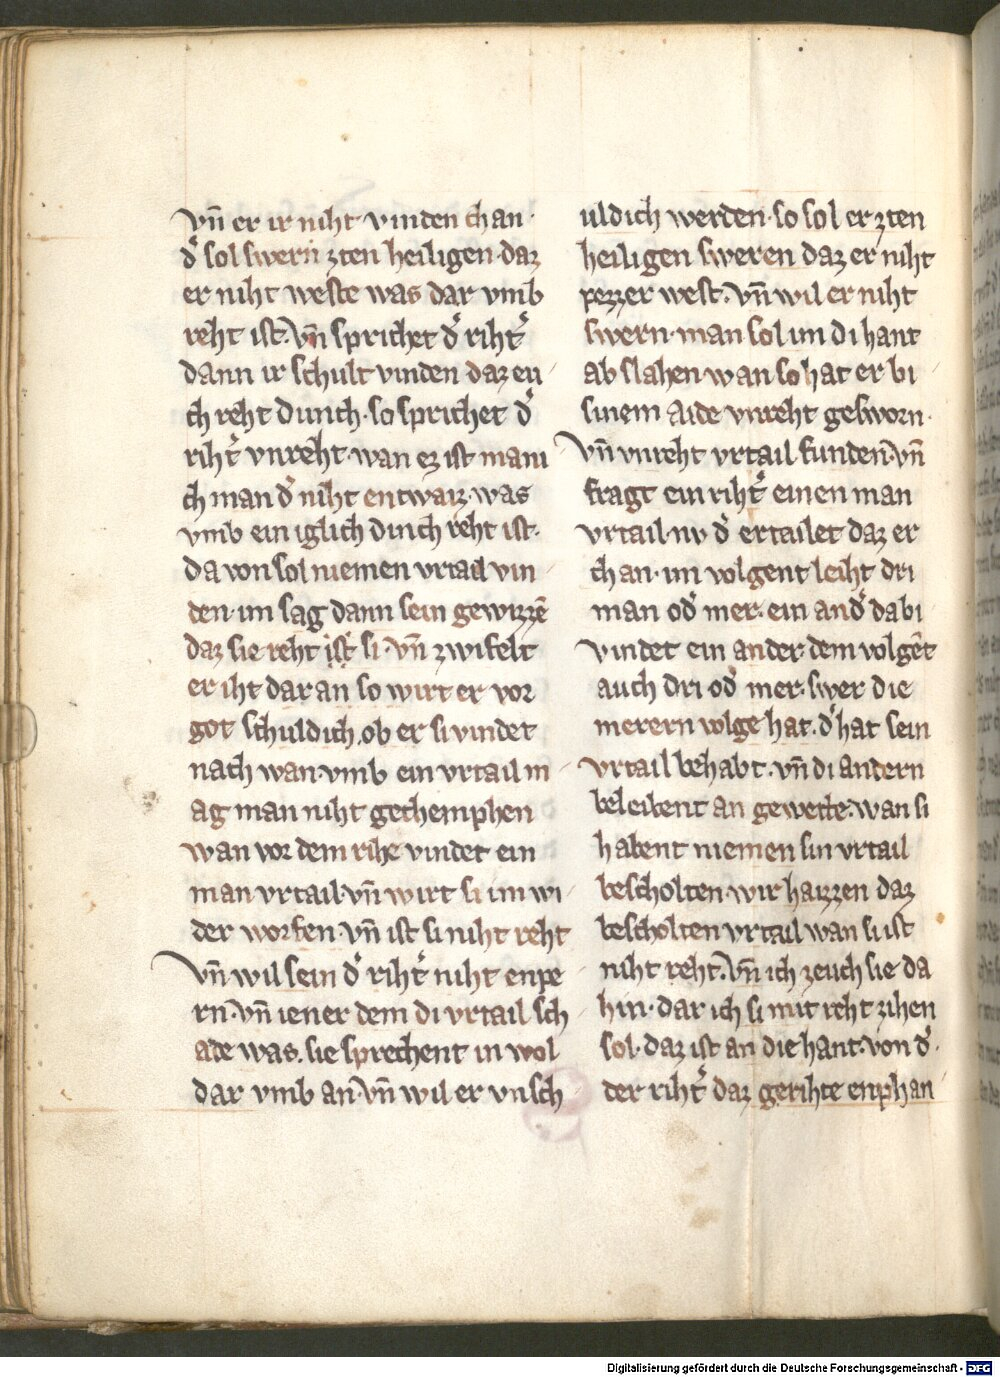 vn̄ er ir niht vinden chan·
d̾ sol swern zten heiligen·daz
er niht weste was dar vmb
reht ist·vn̄ sprichet d̾ riht̾
dann ir schult vinden daz eu
ch reht dunch·so sprichet d̾
riht̾ vnreht·wan ez ist mani
ch man d̾ niht entwaiz·was
vmb ein iglich dinch reht ist·
Da von sol niemen vrtail vin
den·im sag dann sein gewizzē
daz sie reht ist si·vn̄ zwifelt
er iht daran so wirt er vor
got schuldich·ob er si vindet
nach wan·vmb ein vrtail m
ag man niht gechemphen
wan vor dem rihe vindet ein
man vrtail·vn̄ wirt si im wi
der worfen·vn̄ ist si niht reht
vn̄ wil sein d̾ riht̾ niht enpe
rn·vn̄ iener dem di vrtail sch
ade was·sie sprechent in wol
dar vmb an·vn̄ wil er vnsch
uldich werden·so sol er zten
heiligen sweren daz er niht
pezzer west·vn̄ wil er niht
swern·man sol im di hant
ab slahen·wan so hat er bi
sinem aide vnreht gesworn·
vn̄ vnreht vrtail funden·vn̄
fragt ein riht̾ einen man
vrtail·nv d̾ ertailet daz er
chan·im volgent leiht dri
man od̾ mer·ein and̾ da bi
vindet ein ander·dem volgēt
auch dri od̾ mer·swer die
merern volge hat·d̾ hat sein
vrtail behabt·vn̄ di andern
beleibent an gewette·wan si
habent niemen sin vrtail
bescholten·wir haizzen daz
bescholten vrtail wan si ist
niht reht·vn̄ ich zeuch sie da
hin·dar ich si mit reht zihen
sol·daz ist an die hant·von d̾·
der riht̾ daz gerihte enphan
Digitalisierung gefördert durch die Deutsche Forschungsgemeinschaft - DFG